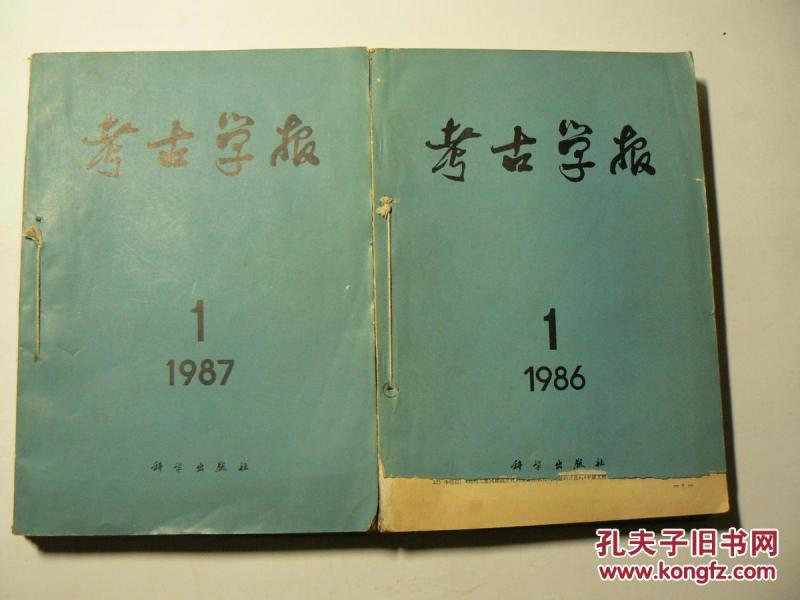 考古学报
1
1987
科学出版社
考古学报
1
1986
科学出版社
孔夫子旧书网
www.kongfz.com